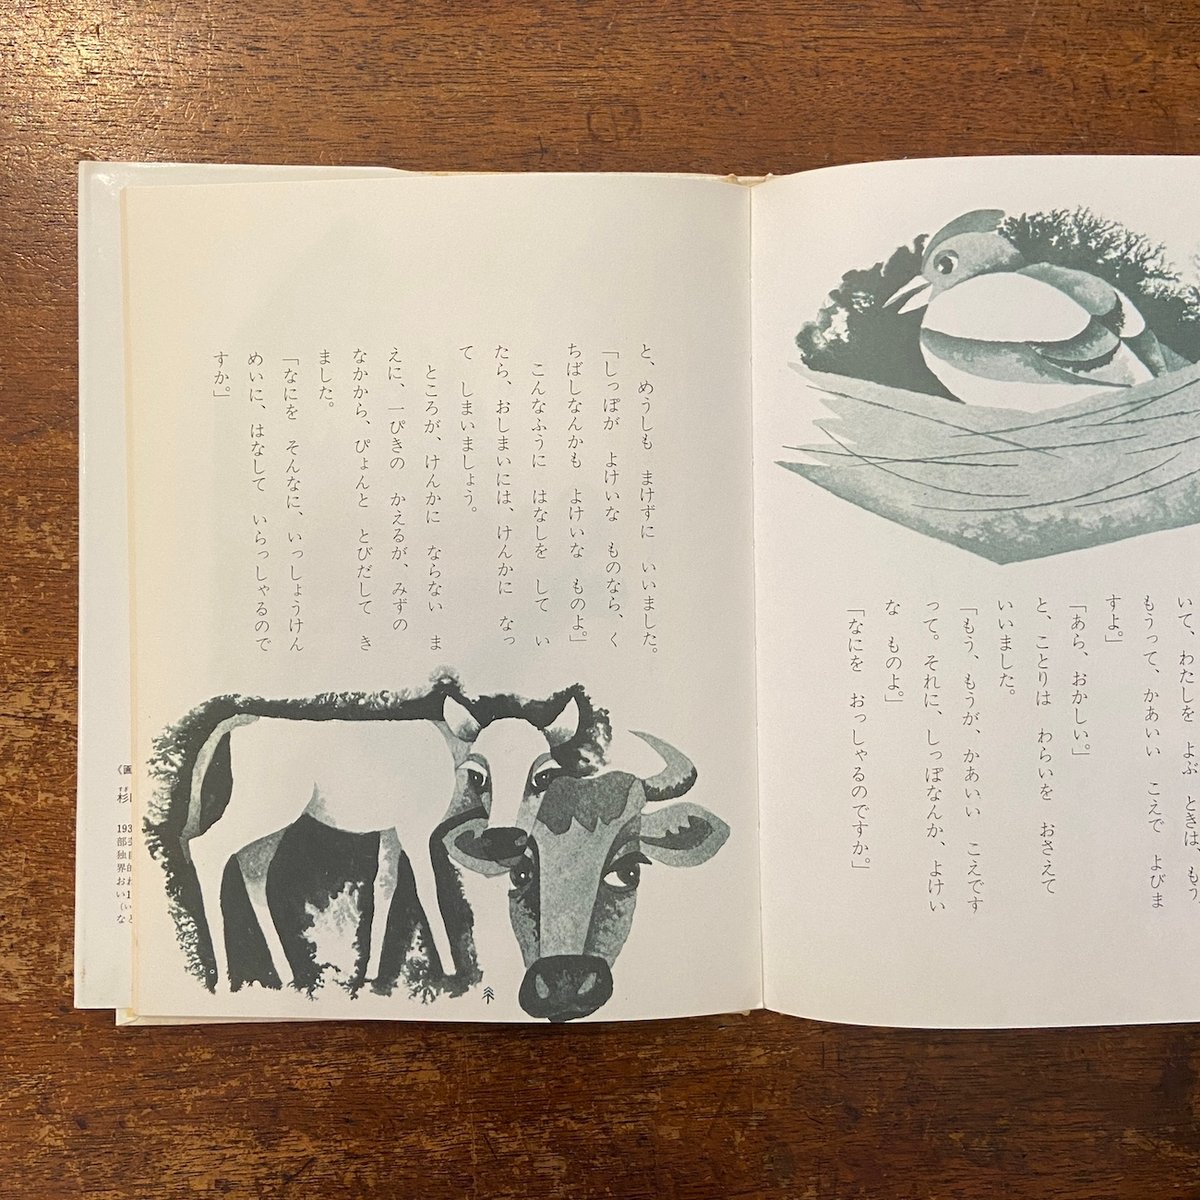 いて、わたしを よぶ ときは、もう
もうって、かあいい こえで よびま
すよ。」
「あら、おかしい。」
と、ことりは わらいを おさえて
いいました。
「もう、もうが、かあいい こえです
って。それに、しっぽなんか、よけい
な ものよ。」
「なにを おっしゃるのですか。」
と、めうしも まけずに いいました。
「しっぽが よけいな ものなら、く
ちばしなんかも よけいな ものよ。」
こんなふうに はなしを して い
たら、おしまいには、けんかに なっ
て しまいましょう。
ところが、けんかに ならない ま
えに、一ぴきの かえるが、みずの
なかから、ぴょんと とびだして き
ました。
「なにを そんなに、いっしょうけん
めいに、はなして いらっしゃるので
すか。」
《画
杉
193
部
独
界
おい
い1
(い
など